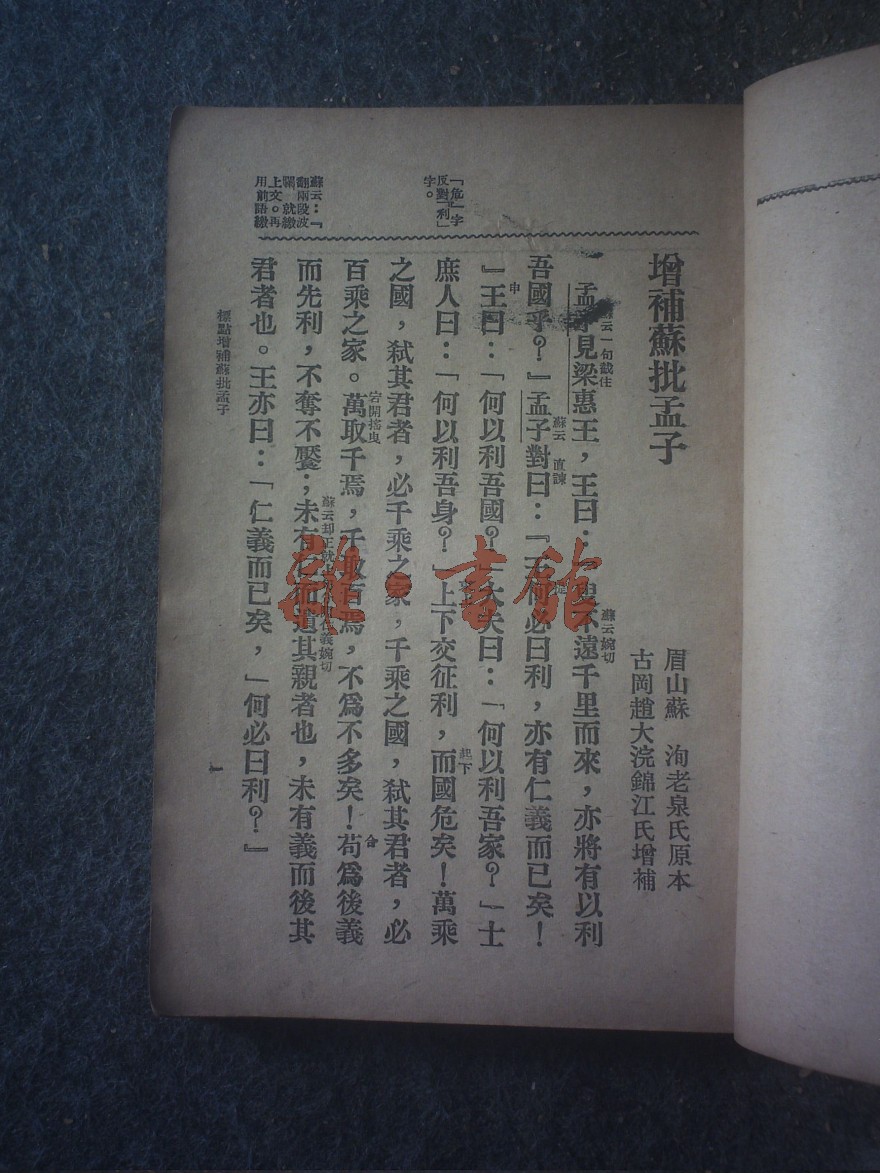 增補蘇批孟子
眉山蘇 洵老泉氏原本
古岡趙大浣錦江氏增補
孟子見梁惠王，王曰：不遠千里而來，亦將有以利
云一句截住
蘇云婉切
吾國乎？』孟子對曰：「王何必曰利，亦有仁義而已矣！
蘇云 直諫
』王曰：「何以利吾國？」大夫曰：「何以利吾家？」士
申
庶人曰：「何以利吾身？」上下交征利，而國危矣！萬乘
起下
之國，弒其君者，必千乘之家，千乘之國，弒其君者，必
百乘之家。萬取千焉，千取百焉，不爲不多矣！苟爲後義
宕開搖曳
合
而先利，不奪不饜；未有仁而遺其親者也，未有義而後其
蘇云却正就義婉切
君者也。王亦曰：「仁義而已矣，」何必曰利？』
「危」字
反對「利」
字。
蘇云：「
翻兩段波
瀾，就繳
上文。再
用前語繳
標點增補蘇批孟子
一
雜·書館